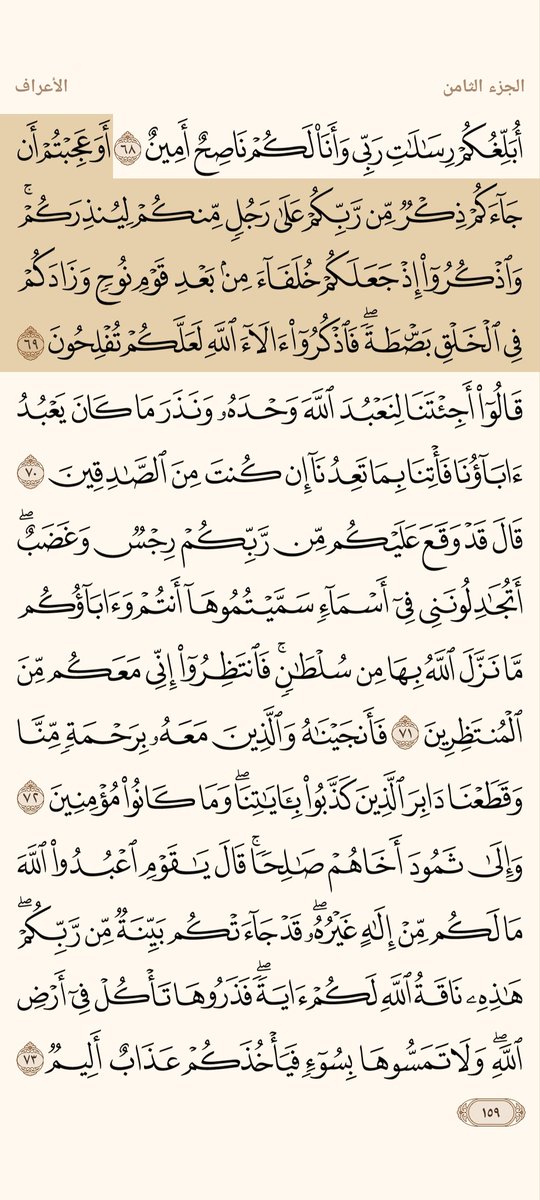 الجزء الثامن الأعراف
أُبَلِّغُكُمْ رِسَٰلَٰتِ رَبِّى وَأَنَا۠ لَكُمْ نَاصِحٌ أَمِينٌ ٦٨ أَوَعَجِبْتُمْ أَن
جَآءَكُمْ ذِكْرٌ مِّن رَّبِّكُمْ عَلَىٰ رَجُلٍ مِّنكُمْ لِيُنذِرَكُمْ ۚ
وَٱذْكُرُوٓا۟ إِذْ جَعَلَكُمْ خُلَفَآءَ مِنۢ بَعْدِ قَوْمِ نُوحٍ وَزَادَكُمْ
فِى ٱلْخَلْقِ بَصْۜطَةً ۖ فَٱذْكُرُوٓا۟ ءَالَآءَ ٱللَّهِ لَعَلَّكُمْ تُفْلِحُونَ ٦٩
قَالُوٓا۟ أَجِئْتَنَا لِنَعْبُدَ ٱللَّهَ وَحْدَهُۥ وَنَذَرَ مَا كَانَ يَعْبُدُ
ءَابَآؤُنَا فَأْتِنَا بِمَا تَعِدُنَآ إِن كُنتَ مِنَ ٱلصَّٰدِقِينَ ٧٠
قَالَ قَدْ وَقَعَ عَلَيْكُم مِّن رَّبِّكُمْ رِجْسٌ وَغَضَبٌ ۖ
أَتُجَٰدِلُونَنِى فِىٓ أَسْمَآءٍ سَمَّيْتُمُوهَآ أَنتُمْ وَءَابَآؤُكُم
مَّا نَزَّلَ ٱللَّهُ بِهَا مِن سُلْطَٰنٍ ۚ فَٱنتَظِرُوٓا۟ إِنِّى مَعَكُم مِّنَ
ٱلْمُنتَظِرِينَ ٧١ فَأَنجَيْنَٰهُ وَٱلَّذِينَ مَعَهُۥ بِرَحْمَةٍ مِّنَّا
وَقَطَعْنَا دَابِرَ ٱلَّذِينَ كَذَّبُوا۟ بِـَٔايَٰتِنَا ۖ وَمَا كَانُوا۟ مُؤْمِنِينَ ٧٢
وَإِلَىٰ ثَمُودَ أَخَاهُمْ صَٰلِحًا ۗ قَالَ يَٰقَوْمِ ٱعْبُدُوا۟ ٱللَّهَ
مَا لَكُم مِّنْ إِلَٰهٍ غَيْرُهُۥ ۖ قَدْ جَآءَتْكُم بَيِّنَةٌ مِّن رَّبِّكُمْ ۖ
هَٰذِهِۦ نَاقَةُ ٱللَّهِ لَكُمْ ءَايَةً ۖ فَذَرُوهَا تَأْكُلْ فِىٓ أَرْضِ
ٱللَّهِ ۖ وَلَا تَمَسُّوهَا بِسُوٓءٍ فَيَأْخُذَكُمْ عَذَابٌ أَلِيمٌ ٧٣
١٥٩